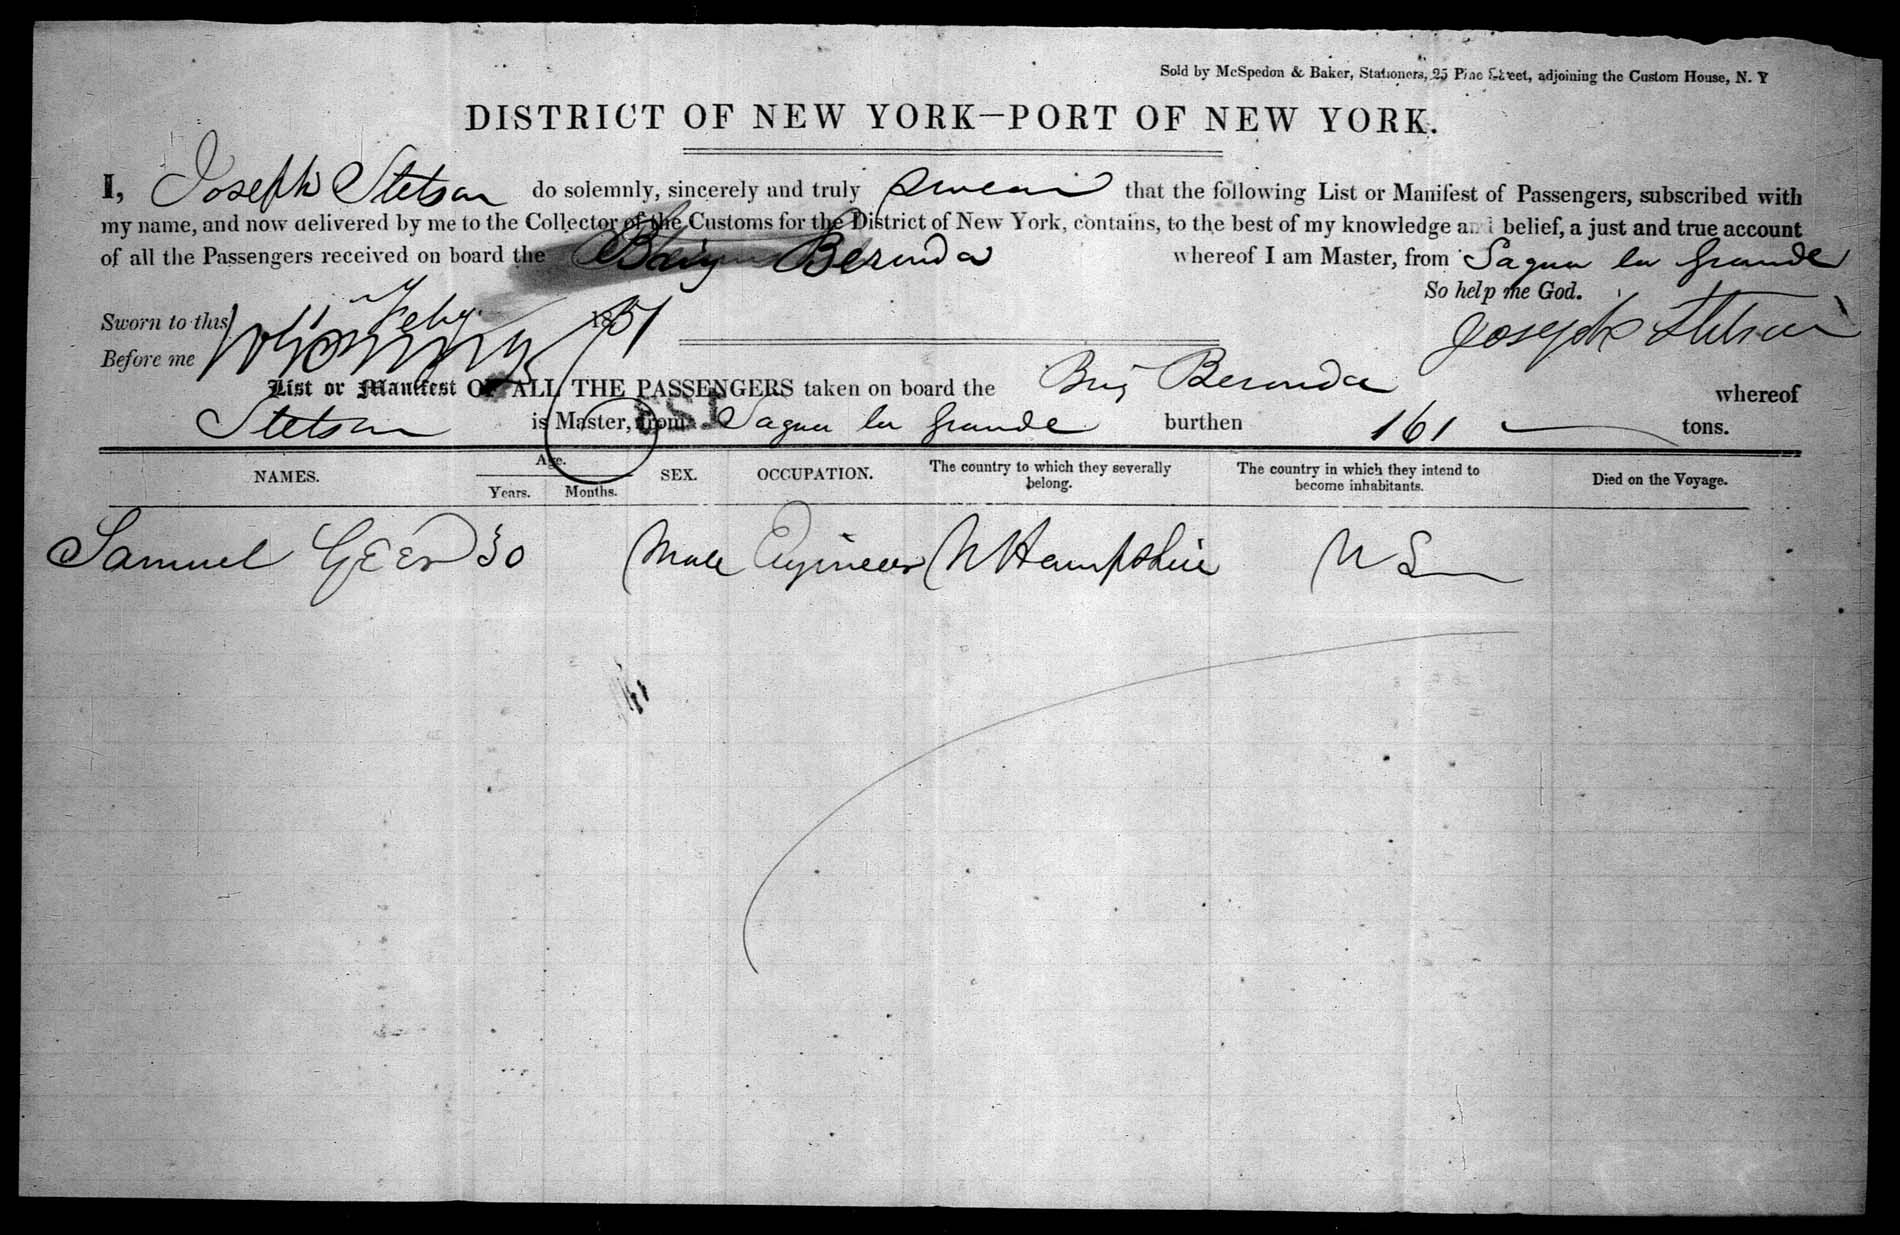 Sold by McSpedon & Baker, Stationers, 25 Pine Street, adjoining the Custom House, N. Y
DISTRICT OF NEW YORK—PORT OF NEW YORK.
I, Joseph Stetson do solemnly, sincerely and truly swear that the following List or Manifest of Passengers, subscribed with
my name, and now delivered by me to the Collector of the Customs for the District of New York, contains, to the best of my knowledge and belief, a just and true account
of all the Passengers received on board the Brig Beronda whereof I am Master, from Sagua la Grande
So help me God.
Sworn to this Feby 1851
Joseph Stetson
Before me
List or Manifest OF ALL THE PASSENGERS taken on board the Brig Beronda whereof
Stetson is Master, from Sagua la Grande burthen 161 tons.
NAMES. Age. Years. Months. SEX. OCCUPATION. The country to which they severally belong. The country in which they intend to become inhabitants. Died on the Voyage.
Samuel Geer 30 Male Engineer N Hampshire U S